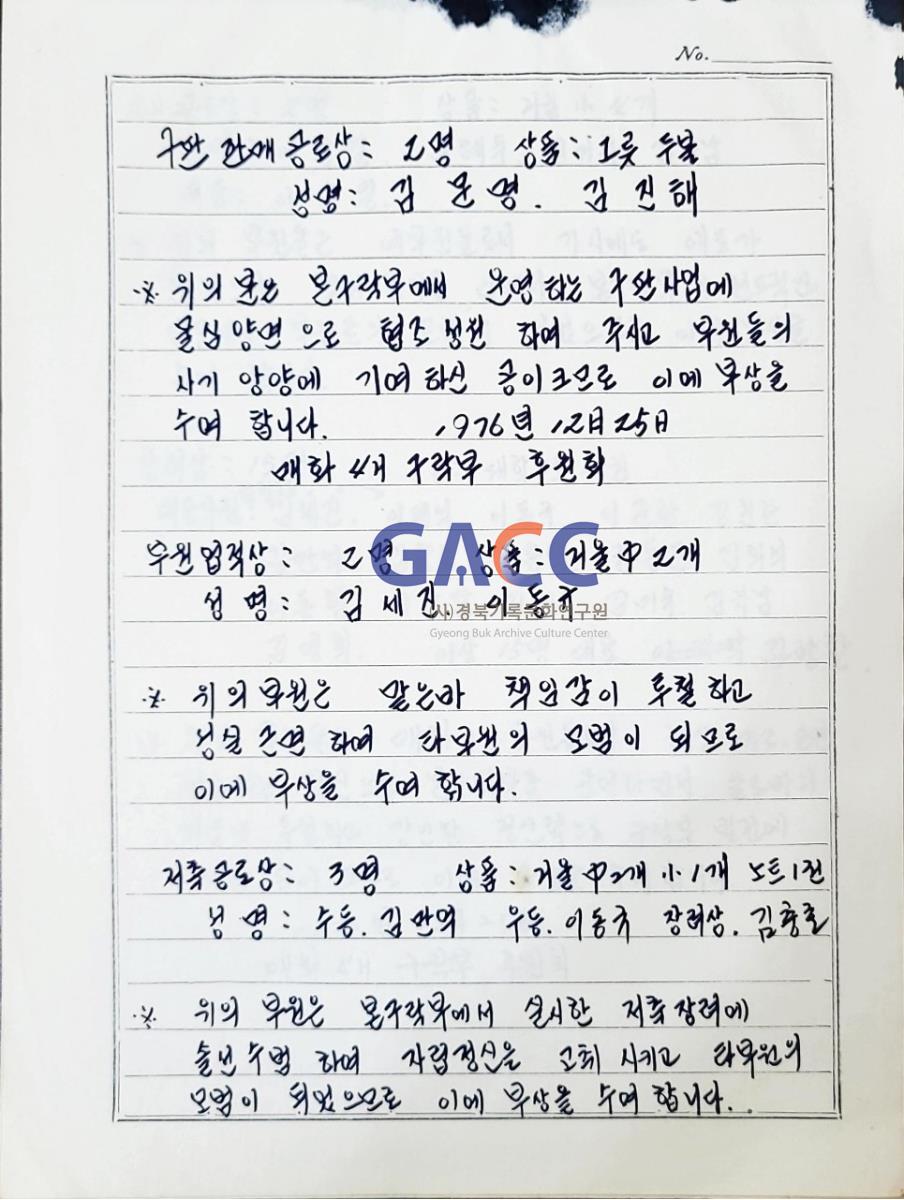 No.
구판 판매 공로상: 2명 상품: 그릇 두벌
성명: 김 문 명. 김 진 해
※ 위의 분은 본구락부에서 운영하는 구판사업에
물심양면으로 협조 성원 하여 주시고 부원들의
사기 앙양에 기여 하신 공이크므로 이에 부상을
수여 합니다. 1976년 12月 25日
매화 4H 구락부 후원회
부원업적상: 2명 상품: 거울 中 2개
성 명: 김 세 진. 이 동 구
GACC
(사)경북기록문화연구원
Gyeong Buk Archive Culture Center
※ 위의 부원은 맡은바 책임감이 투철하고
성실 근면 하여 타부원의 모범이 되므로
이에 부상을 수여 합니다.
저축공로상: 3명 상품: 거울 中2개 小1개 노트1권
성 명: 수등. 김만억 우등. 이동구 장려상. 김
※ 위의 부원은 본구락부에서 실시한 저축장려에
솔선수범 하여 자립정신을 고취 시키고 타부원의
모범이 되었으므로 이에 부상을 수여 합니다..